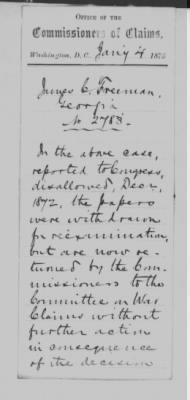 OFFICE OF THE
Commissioners of Claims,
Washington, D. C. Jan'y 4 1875
James C. Freeman,
Georgia
No 2788.
In the above case,
reported to Congress,
disallowed, Decr,
1872, the papers
were withdrawn
for reexamination,
but are now re-
turned by the Com-
missioners to the
Committee on War
Claims without
further action
in consequence
of the decision